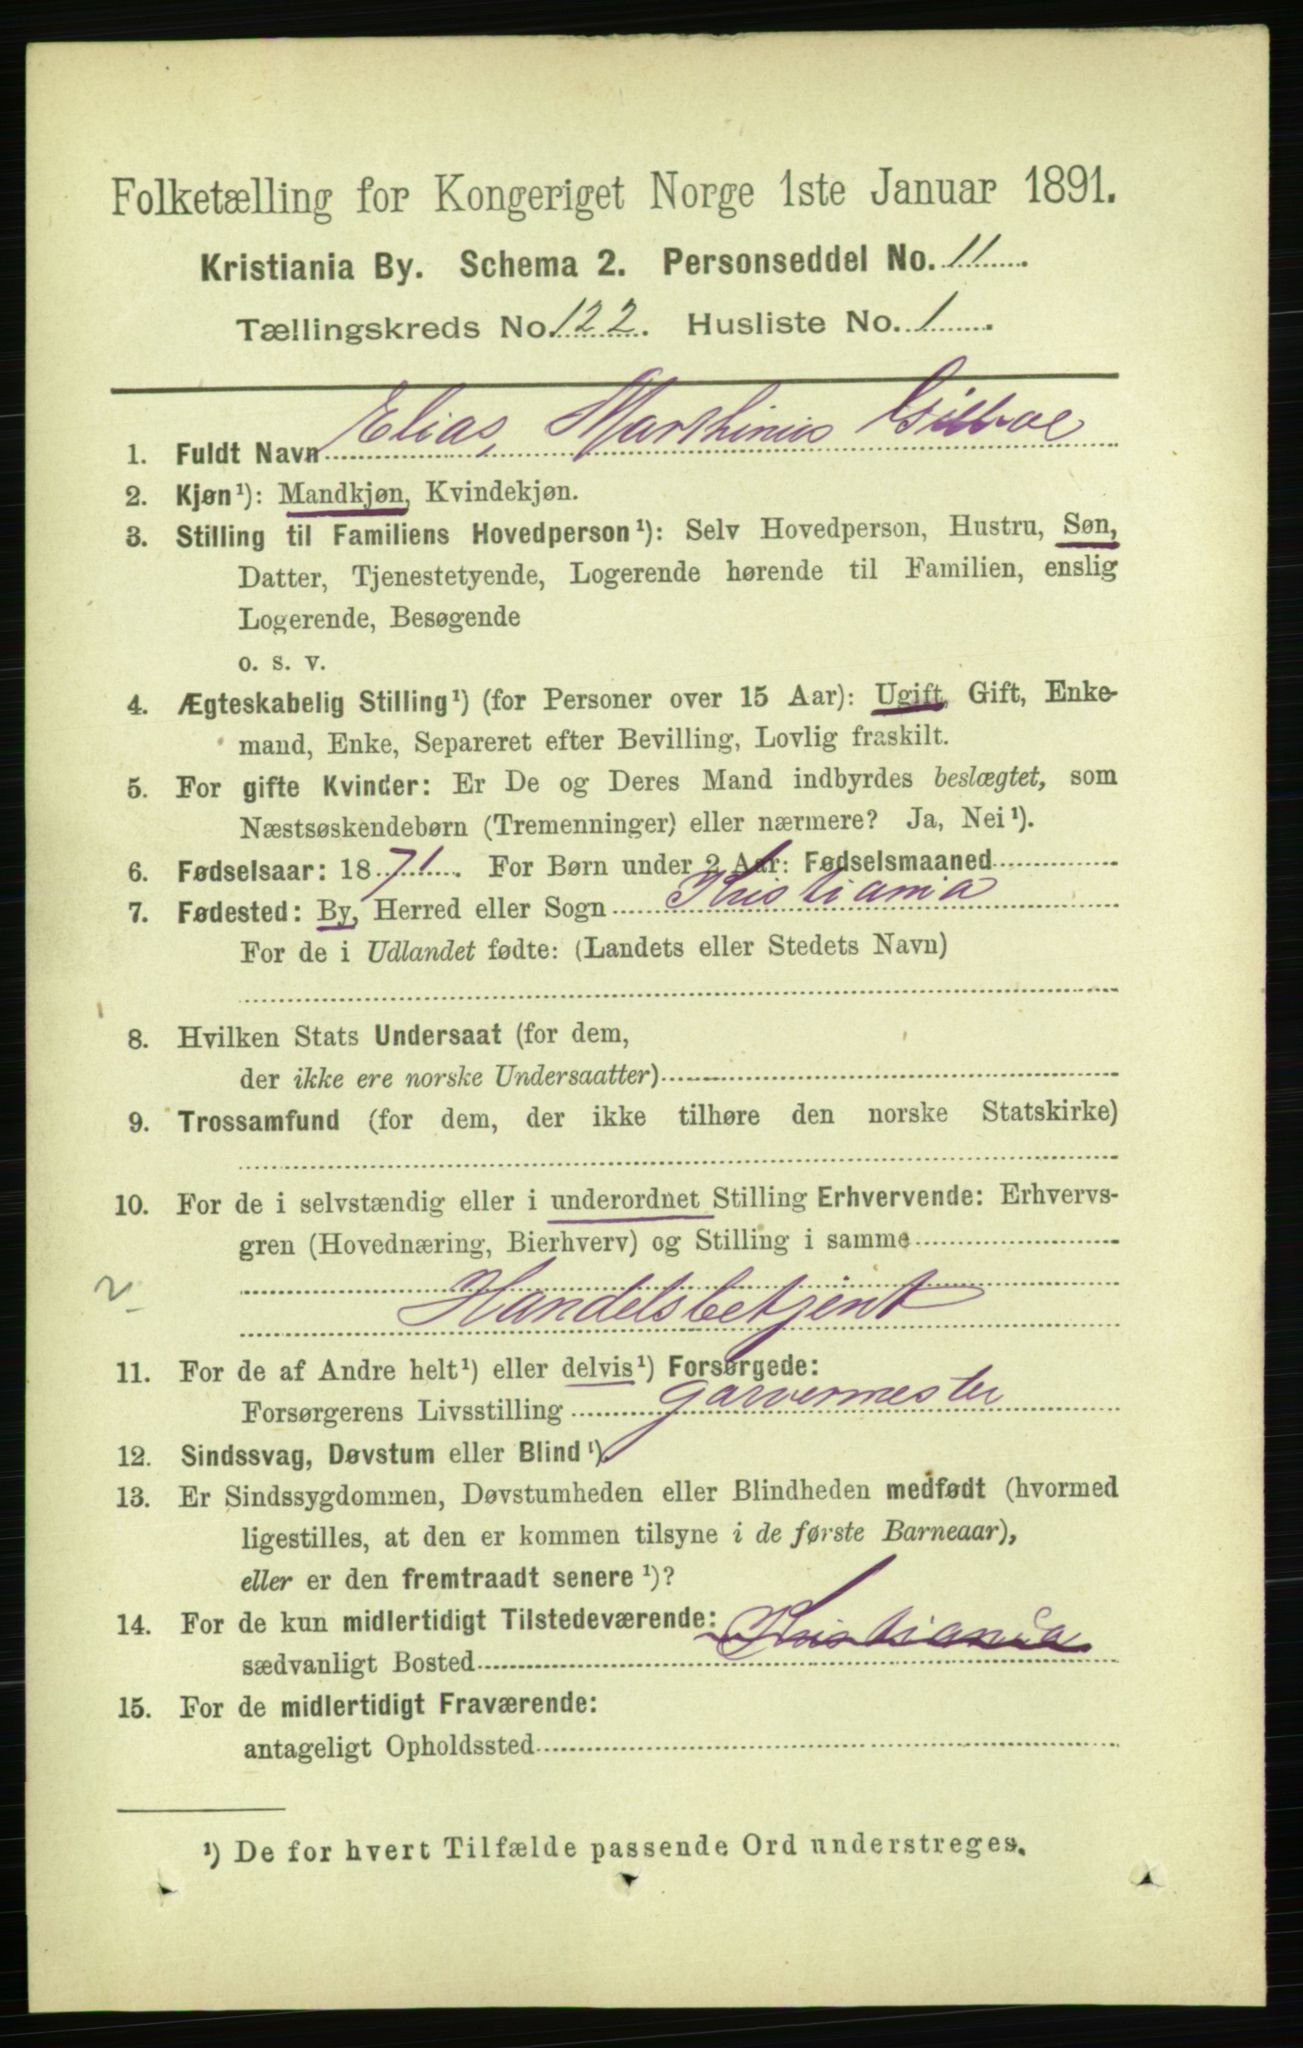 Folketælling for Kongeriget Norge 1ste Januar 1891.
Kristiania By. Schema 2. Personseddel No. 11.
Tællingskreds No. 122. Husliste No. 1.
1. Fuldt Navn Elias, Marthinius
2. Kjøn¹): Mandkjøn, Kvindekjøn.
3. Stilling til Familiens Hovedperson¹): Selv Hovedperson, Hustru, Søn,
Datter, Tjenestetyende, Logerende hørende til Familien, enslig
Logerende, Besøgende
o. s. v.
4. Ægteskabelig Stilling¹) (for Personer over 15 Aar): Ugift, Gift, Enke-
mand, Enke, Separeret efter Bevilling, Lovlig fraskilt.
5. For gifte Kvinder: Er De og Deres Mand indbyrdes beslægtet, som
Næstsøskendebørn (Tremenninger) eller nærmere? Ja, Nei¹).
6. Fødselsaar: 1871. For Børn under 2 Aar: Fødselsmaaned
7. Fødested: By, Herred eller Sogn Kristiania
For de i Udlandet fødte: (Landets eller Stedets Navn)
8. Hvilken Stats Undersaat (for dem,
der ikke ere norske Undersaatter)
9. Trossamfund (for dem, der ikke tilhøre den norske Statskirke)
10. For de i selvstændig eller i underordnet Stilling Erhvervende: Erhvervs-
gren (Hovednæring, Bierhverv) og Stilling i samme
2
Handelsbetjent
11. For de af Andre helt¹) eller delvis¹) Forsørgede:
Forsørgerens Livsstilling garvermester
12. Sindssvag, Døvstum eller Blind¹).
13. Er Sindssygdommen, Døvstumheden eller Blindheden medfødt (hvormed
ligestilles, at den er kommen tilsyne i de første Barneaar),
eller er den fremtraadt senere¹)?
14. For de kun midlertidigt Tilstedeværende:
sædvanligt Bosted Kristiania
15. For de midlertidigt Fraværende:
antageligt Opholdssted
¹) De for hvert Tilfælde passende Ord understreges.